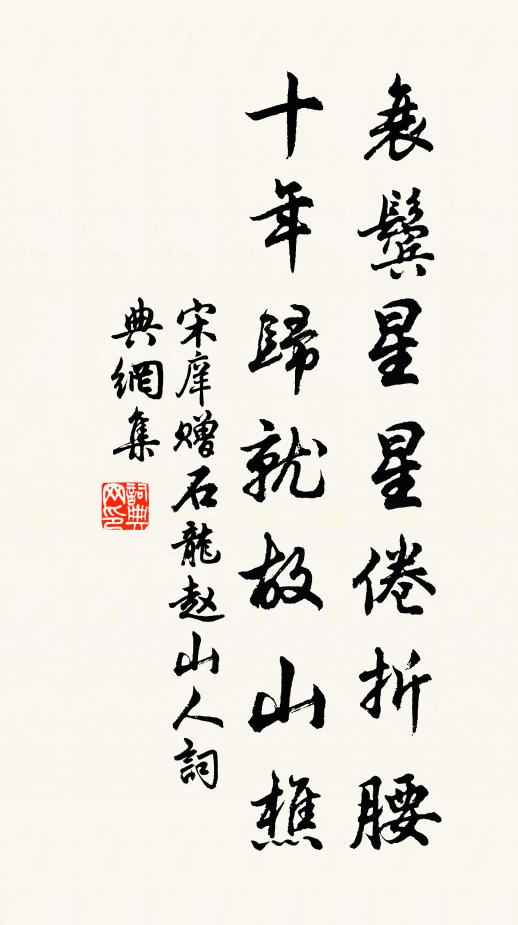 衰鬢星星倦折腰
十年歸就故山樵
宋庠赠石龍赵山人詞
典網集
詞典
网印